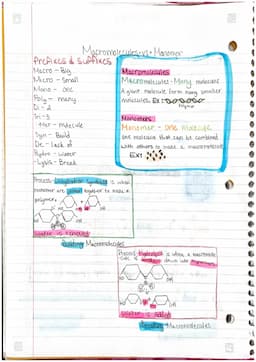 Macromolecules vs. Monomer
Prefixes & Suffixes
Macro - Big
Micro - Small
Mono - one
Poly - many
Di - 2
Tri - 3
-Mer - molecule
Syn - Build
De - lack of
Hydro - water
-Lysis - Break
Macromolecules
Macromolecules - Many molecules
A giant molecule form many smaller
molecules. Ex:
Polymer
Monomers
Monomer - One Molecule
one molecule that can be combined
with others to make a macromolecule
Ex:
Process: Dehydration Synthesis is when
monomer are joined together to make a
polymer.
HO OH
Water is removed
Building Macromolecules
Process: Hydrolysis is when a macromolecule
is broken down into
HO OH
Water is added
Macromolecules